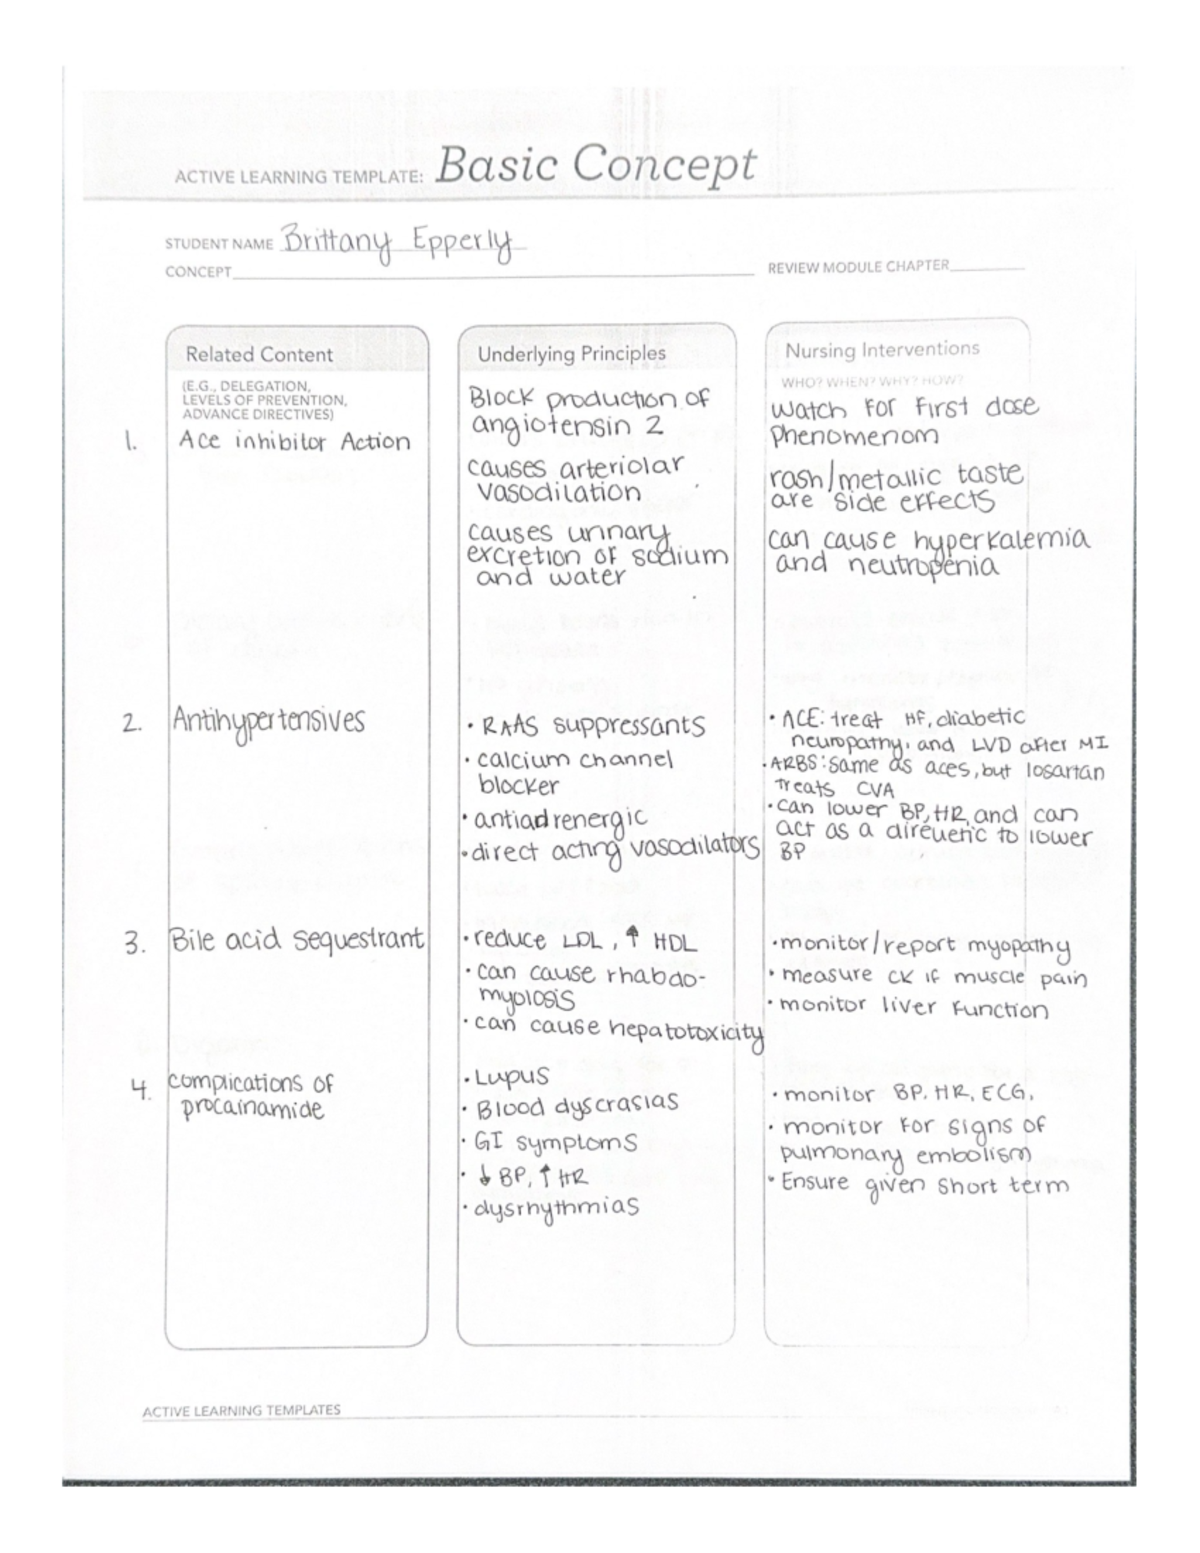 ACTIVE LEARNING TEMPLATE: Basic Concept
STUDENT NAME Brittany Epperly
CONCEPT
REVIEW MODULE CHAPTER
Related Content
(E.G., DELEGATION,
LEVELS OF PREVENTION,
ADVANCE DIRECTIVES)
1. Ace inhibitor Action
Underlying Principles
Block production of
angiotensin 2
causes arteriolar
vasodilation
causes urinary
excretion of sodium
and water
Nursing Interventions
WHO? WHEN? WHY? HOW?
watch for first dose
phenomenom
rash/metallic taste
are side effects
can cause hyperkalemia
and neutropenia
2. Antihypertensives
• RAAS suppressants
• calcium channel
blocker
• antiadrenergic
• direct acting vasodilators
• ACE: treat HF, diabetic
neuropathy, and LVD after MI
• ARBS: same as aces, but losartan
treats CVA
• can lower BP, HR, and can
act as a direuetic to lower
BP
3. Bile acid sequestrant
• reduce LDL, ↑ HDL
• can cause rhabdo-
myolosis
• can cause hepatotoxicity
• monitor/report myopathy
• measure CK if muscle pain
• monitor liver function
4. complications of
procainamide
• Lupus
• Blood dyscrasias
• GI symptoms
• ↓ BP, ↑ HR
• dysrhythmias
• monitor BP, HR, ECG,
• monitor for signs of
pulmonary embolism
• Ensure given short term
ACTIVE LEARNING TEMPLATES